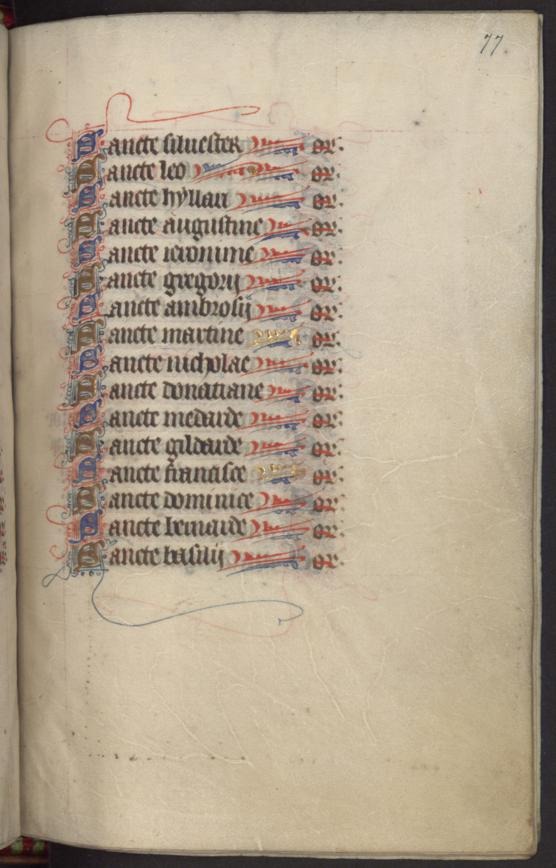 77
Sancte siluester or.
Sancte leo or.
Sancte hyllari or.
Sancte augustine or.
Sancte ieronime or.
Sancte gregorij or.
Sancte ambrosij or.
Sancte martine or.
Sancte nicholae or.
Sancte donatiane or.
Sancte medarde or.
Sancte gildarde or.
Sancte francisce or.
Sancte dominice or.
Sancte bernarde or.
Sancte basilij or.